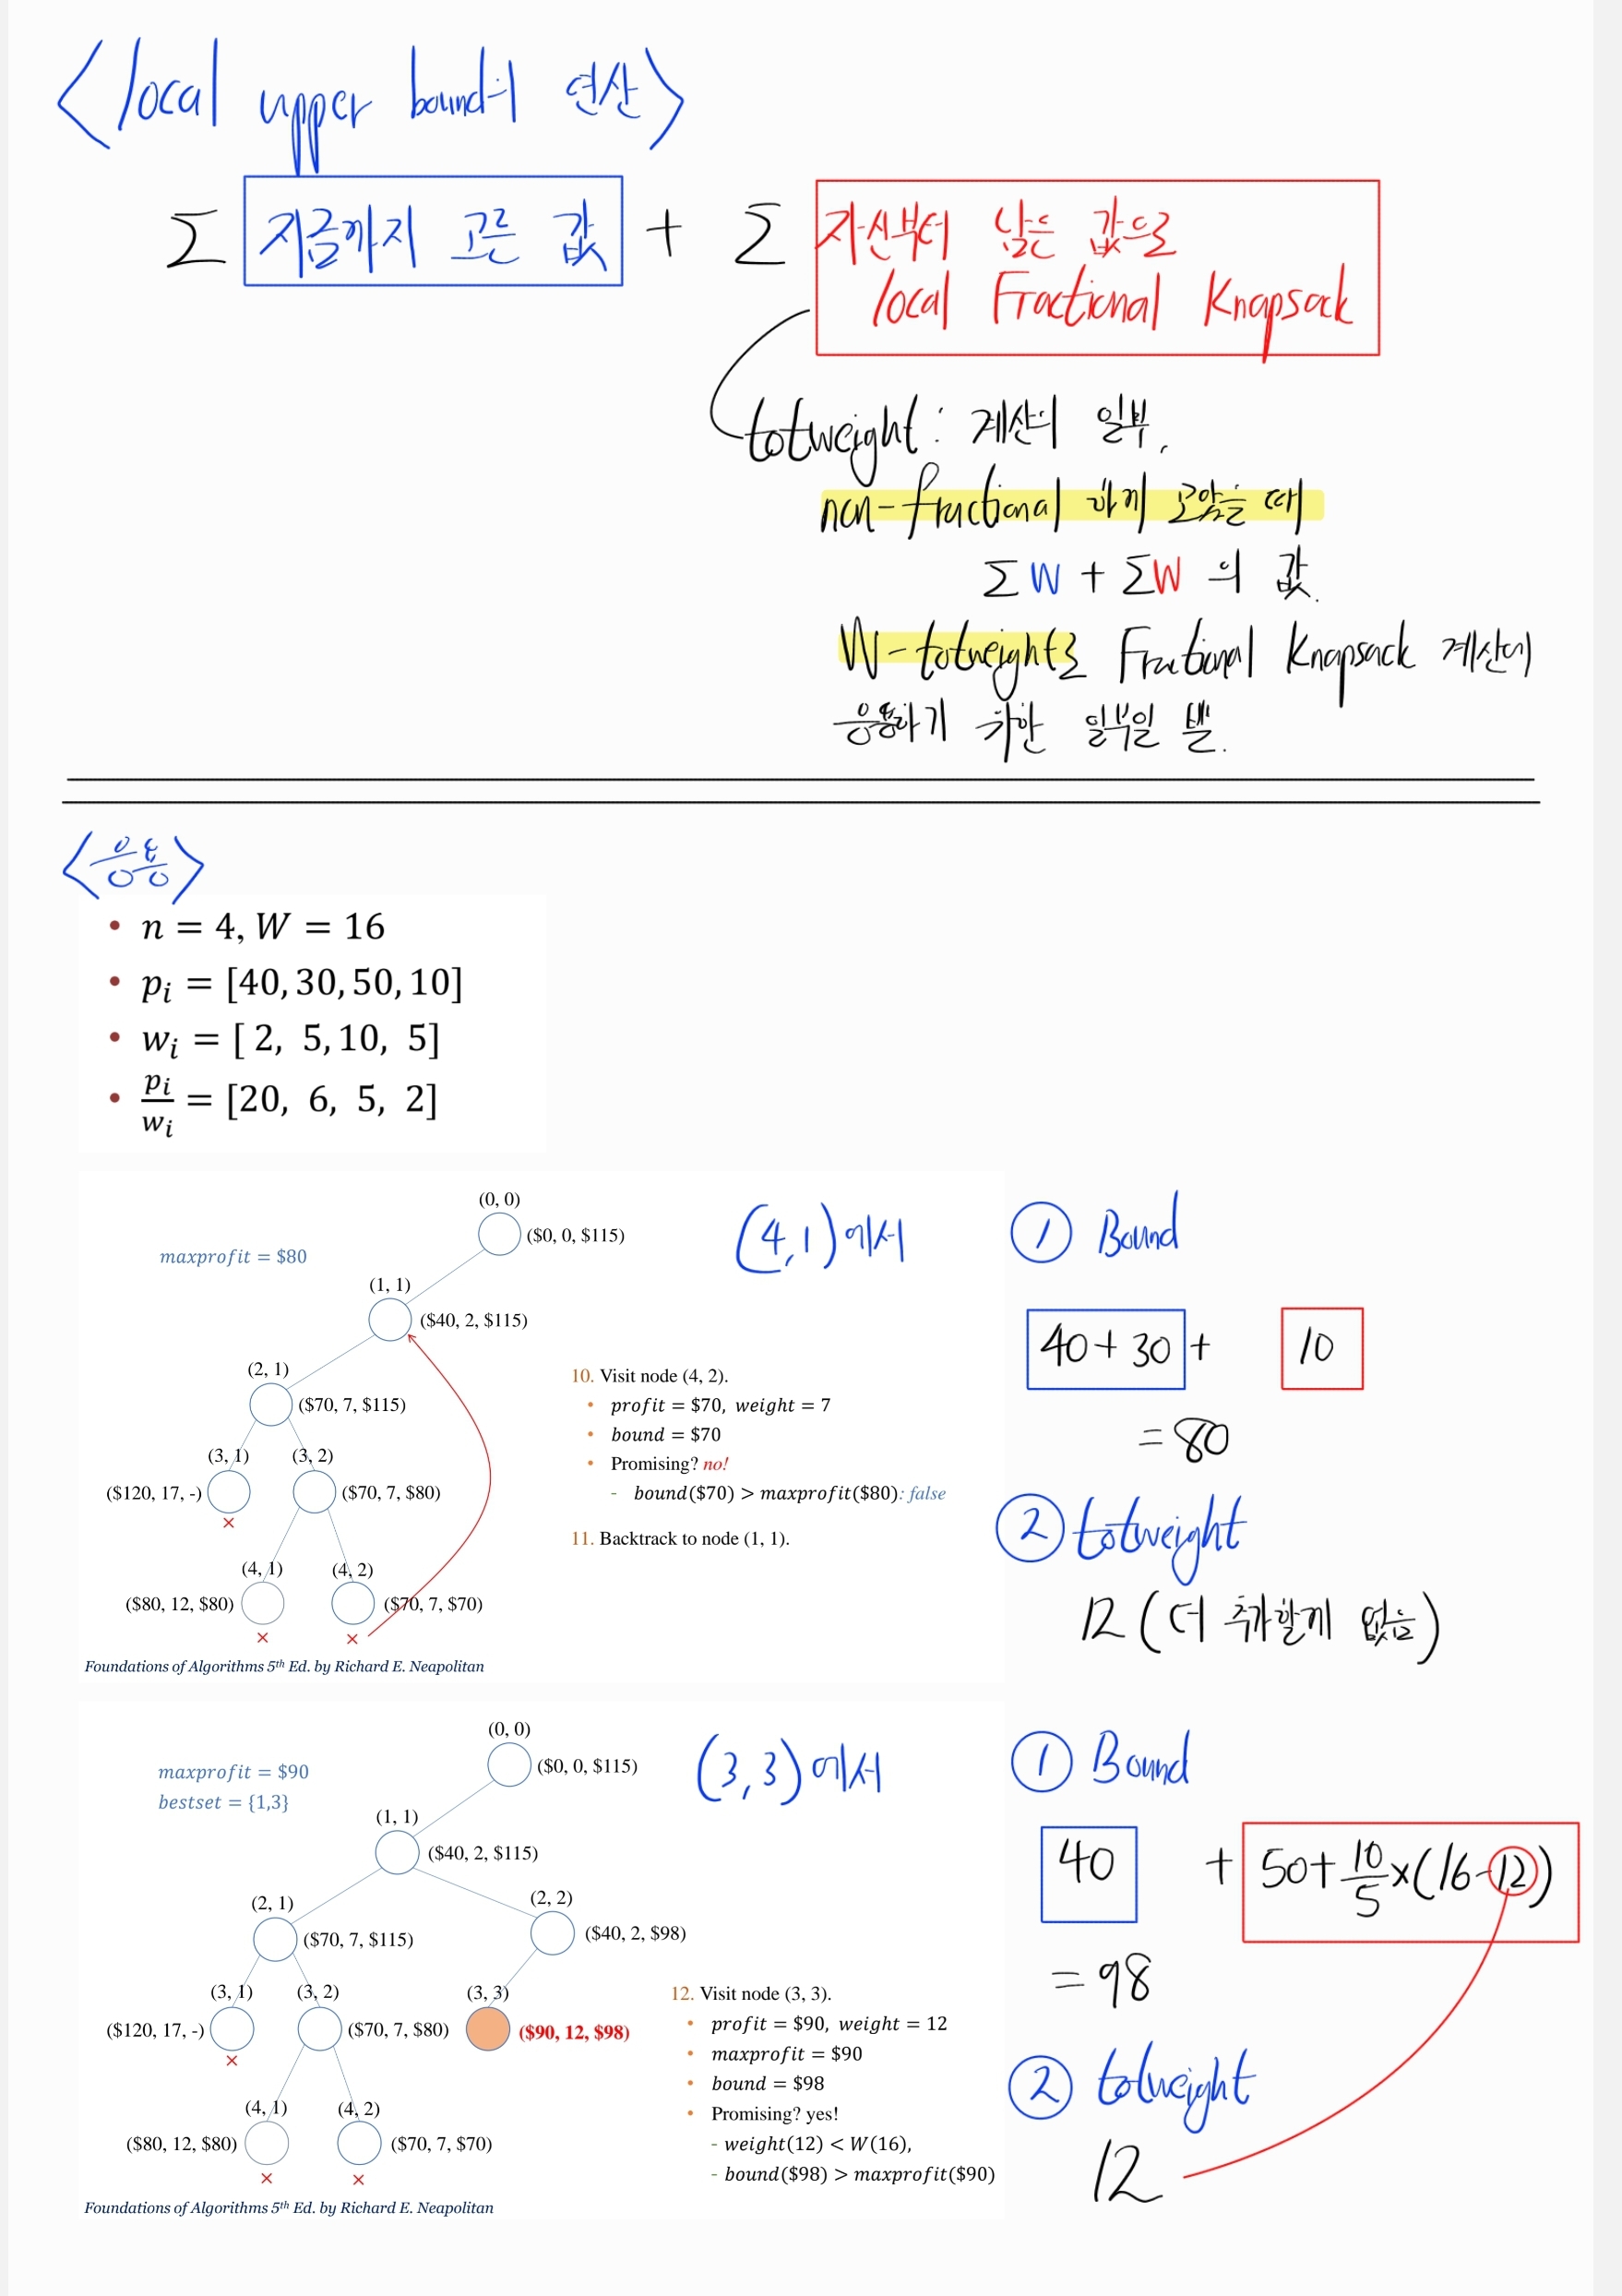 <local upper bound의 연산>
Σ 지금까지 고른 값 + Σ 자신부터 남은 값으로
local Fractional Knapsack
totweight : 계산의 일부.
non-fractional 하게 골랐을 때
ΣW + ΣW 의 값.
W-totweight로 Fractional Knapsack 계산에
응용하기 위한 일부일 뿐.
<응용>
• n = 4, W = 16
• pᵢ = [40, 30, 50, 10]
• wᵢ = [ 2, 5, 10, 5]
• pᵢ/wᵢ = [20, 6, 5, 2]
(4,1)에서
① Bound
40+30 + 10
= 80
② totweight
12 (더 추가할게 없음)
maxprofit = $80
(0, 0)
($0, 0, $115)
(1, 1)
($40, 2, $115)
(2, 1)
($70, 7, $115)
(3, 1) (3, 2)
($120, 17, -) ($70, 7, $80)
×
(4, 1) (4, 2)
($80, 12, $80) ($70, 7, $70)
× ×
10. Visit node (4, 2).
• profit = $70, weight = 7
• bound = $70
• Promising? no!
- bound($70) > maxprofit($80): false
11. Backtrack to node (1, 1).
Foundations of Algorithms 5th Ed. by Richard E. Neapolitan
(3,3)에서
① Bound
40 + 50+10/5×(16-12)
= 98
② totweight
12
maxprofit = $90
bestset = {1,3}
(0, 0)
($0, 0, $115)
(1, 1)
($40, 2, $115)
(2, 1) (2, 2)
($70, 7, $115) ($40, 2, $98)
(3, 1) (3, 2) (3, 3)
($120, 17, -) ($70, 7, $80) ($90, 12, $98)
×
(4, 1) (4, 2)
($80, 12, $80) ($70, 7, $70)
× ×
12. Visit node (3, 3).
• profit = $90, weight = 12
• maxprofit = $90
• bound = $98
• Promising? yes!
- weight(12) < W(16),
- bound($98) > maxprofit($90)
Foundations of Algorithms 5th Ed. by Richard E. Neapolitan